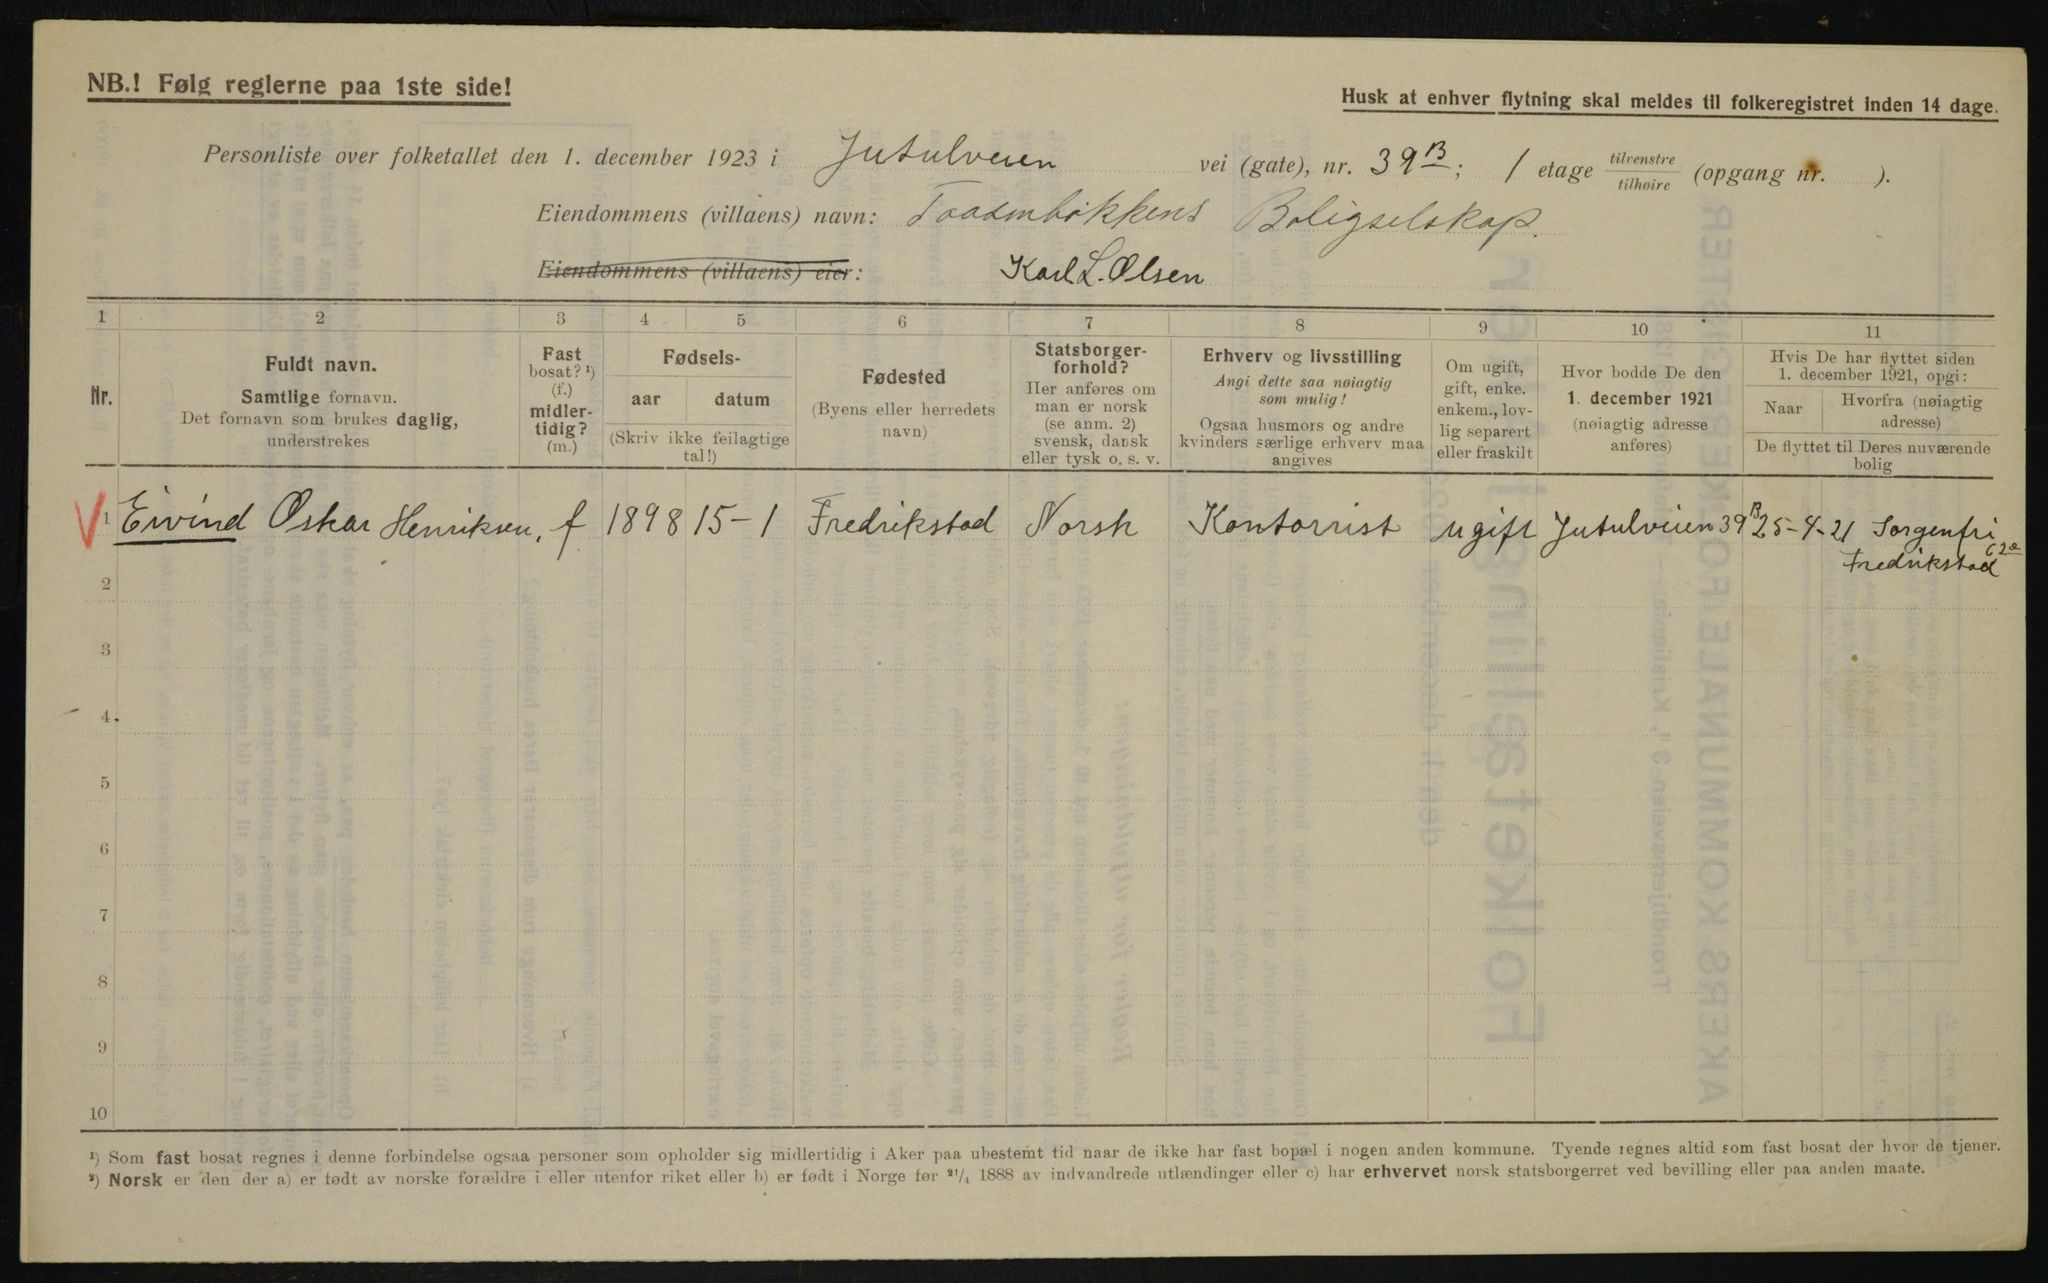 NB.! Følg reglerne paa 1ste side!
Husk at enhver flytning skal meldes til folkeregistret inden 14 dage.
Personliste over folketallet den 1. december 1923 i Jutulveien vei (gate), nr. 39 B; 1 etage tilvenstre tilhøire (opgang nr. ).
Eiendommens (villaens) navn: Taasenbakkens Boligselskap.
Eiendommens (villaens) eier: Karl L. Olsen
1 2 3 4 5 6 7 8 9 10 11
Nr.
Fuldt navn.
Samtlige fornavn.
Det fornavn som brukes daglig,
understrekes
Fast
bosat? ¹)
(f.)
midler-
tidig?
(m.)
Fødsels-
aar datum
(Skriv ikke feilagtige
tal!)
Fødested
(Byens eller herredets
navn)
Statsborger-
forhold?
Her anføres om
man er norsk
(se anm. 2)
svensk, dansk
eller tysk o. s. v.
Erhverv og livsstilling
Angi dette saa nøiagtig
som mulig!
Ogsaa husmors og andre
kvinders særlige erhverv maa
angives
Om ugift,
gift, enke.
enkem., lov-
lig separert
eller fraskilt
Hvor bodde De den
1. december 1921
(nøiagtig adresse
anføres)
Hvis De har flyttet siden
1. december 1921, opgi:
Naar
Hvorfra (nøiagtig
adresse)
De flyttet til Deres nuværende
bolig
1 Eivind Oskar Henriksen, f 1898 15-1 Fredrikstad Norsk Kontorrist ugift Jutulveien 39 B 25-4-21 Sorgenfri
Fredrikstad
2
3
4
5
6
7
8
9
10
¹) Som fast bosat regnes i denne forbindelse ogsaa personer som opholder sig midlertidig i Aker paa ubestemt tid naar de ikke har fast bopæl i nogen anden kommune. Tyende regnes altid som fast bosat der hvor de tjener.
²) Norsk er den der a) er født av norske forældre i eller utenfor riket eller b) er født i Norge før ²¹/₄ 1888 av indvandrede utlændinger eller c) har erhvervet norsk statsborgerret ved bevilling eller paa anden maate.